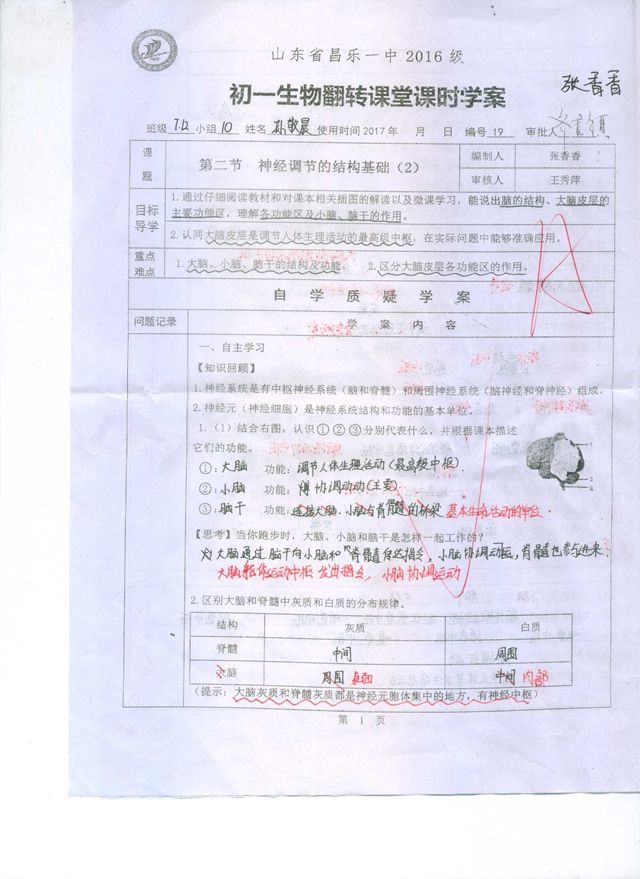 山东省昌乐一中2016级
张香香
初一生物翻转课堂课时学案
班级 7.12 小组 10 姓名 孙敬晨 使用时间2017年 月 日 编号 19 审批人
课题 第二节 神经调节的结构基础（2） 编制人 张香香
审核人 王秀萍
目标导学 1.通过仔细阅读教材和对课本相关插图的解读以及微课学习，能说出脑的结构、大脑皮层的
主要功能区，理解各功能区及小脑、脑干的作用。
2.认同大脑皮层是调节人体生理活动的最高级中枢，在实际问题中能够准确应用。
重点难点 1.大脑、小脑、脑干的结构及功能。 2.区分大脑皮层各功能区的作用。
A
自 学 质 疑 学 案
问题记录 学 案 内 容
一、自主学习
【知识回顾】
1.神经系统是有中枢神经系统（脑和脊髓）和周围神经系统（脑神经和脊神经）组成。
2.神经元（神经细胞）是神经系统结构和功能的基本单位。
1.（1）结合右图，认识①②③分别代表什么，并根据课本描述
它们的功能。
①：大脑 功能：调节人体生理活动(最高级中枢)
②：小脑 功能： 协调动动(主要)
③：脑干 功能：连接大脑、小脑与脊髓的桥梁 基本生命活动的中枢
【思考】当你跑步时，大脑、小脑和脑干是怎样一起工作的？
大脑通过脑干向小脑和脊髓传达指令，小脑协调动运，脊髓也参与进来.
大脑躯体运动中枢 发出指令，小脑协调运动
2.区别大脑和脊髓中灰质和白质的分布规律。
结构 灰质 白质
脊髓 中间 周围
大脑 周围 表面 中间 内部
（提示：大脑灰质和脊髓灰质都是神经元胞体集中的地方，有神经中枢）
第 1 页